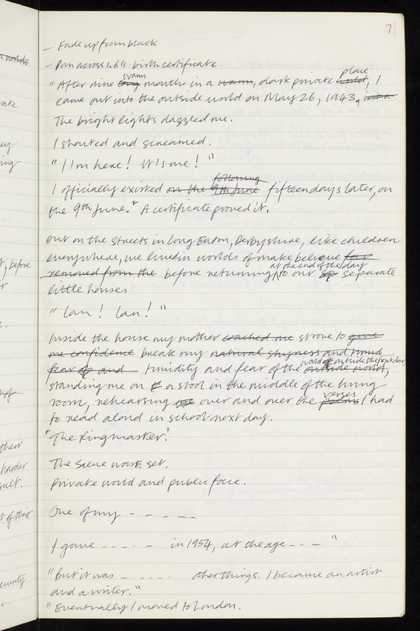 7
— Fade up from black
— Pan across I.B's birth certificate
"After nine long warm months in a warm, dark private world, place I
came out into the outside world on May 26, 1943,
The bright lights dazzled me.
I shouted and screamed.
"I'm here! It's me!"
I officially existed on the 9th June following fifteen days later, on
the 9th June." A certificate proved it.
out on the streets in Long Eaton, Derbyshire, like children
everywhere, we lived in worlds of make believe
removed from the before returning at the end of the day to our separate
little houses
"Ian! Ian!"
Inside the house my mother coached me strove to give
me confidence break my natural shyness and timid
fear of and timidity and fear of the outside world,
standing me on a stool in the middle of the living
room, rehearsing over and over the poems verses I had
to read aloud in school next day.
"The Ringmaster!
The scene was set.
Private world and public face.
One of my - - - - -
I gave - - - - - in 1954, at the age - - - "
"But it was - - - - - other things. I became an artist
and a writer."
"Eventually I moved to London.